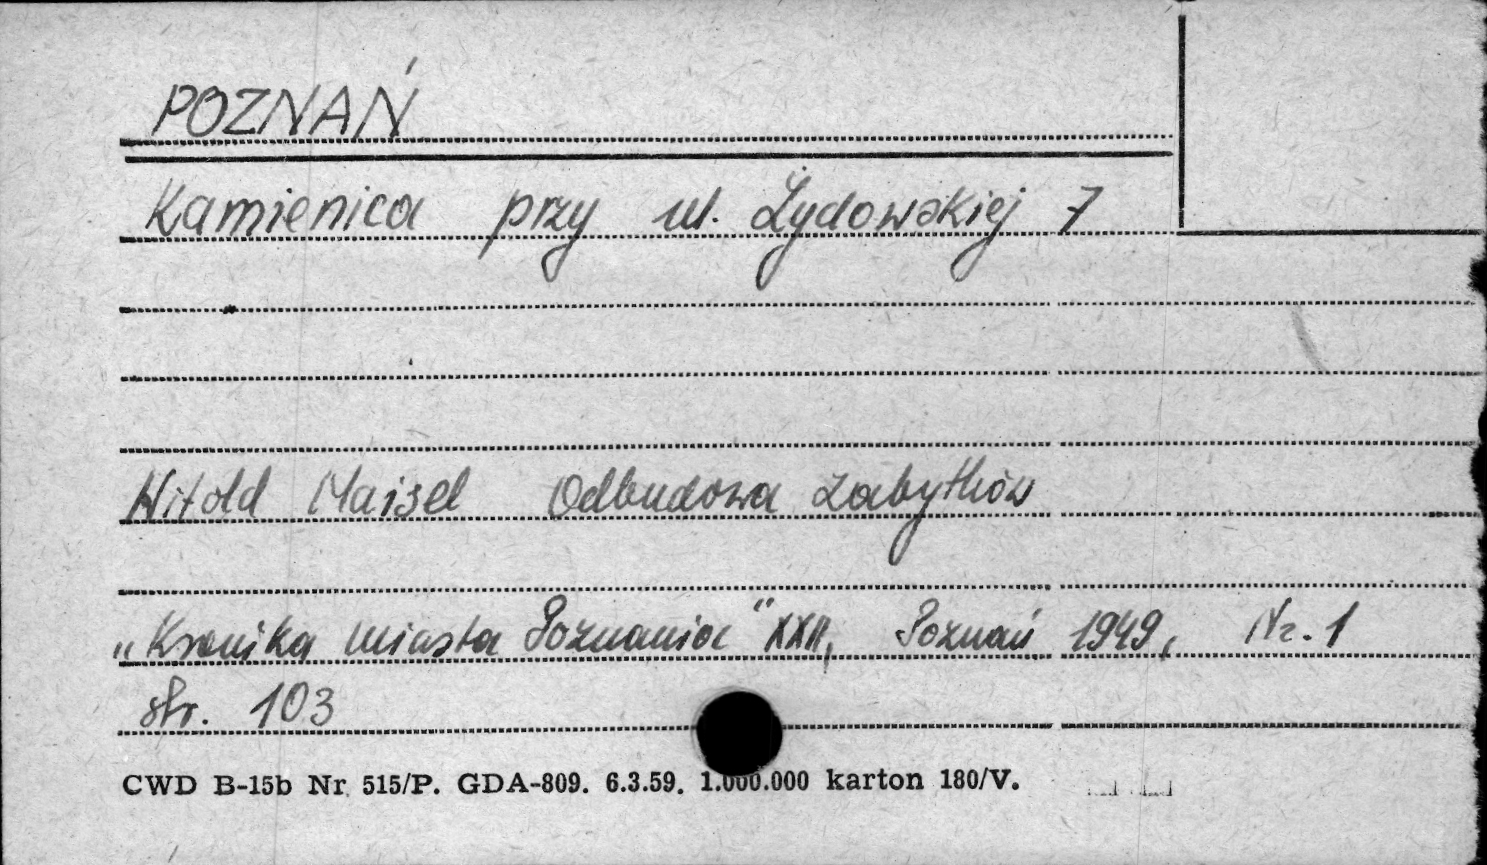 POZNAŃ
Kamienica przy ul. Żydowskiej 7
Witold Maisel Odbudowa zabytków
„Kronika miasta Poznania" XXII, Poznań 1949, Nr. 1
str. 103
CWD B-15b Nr 515/P. GDA-809. 6.3.59. 1.000.000 karton 180/V.